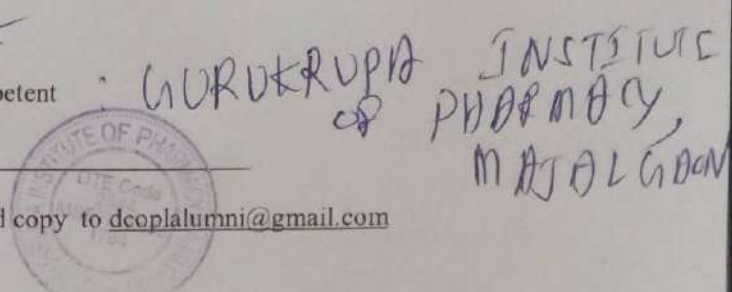 petent : GURUKRUPA INSTITUTE
OF PHARMACY,
MAJALGAON
INSTITUTE OF PHAR
DTE Code
d copy to dcoplalumni@gmail.com